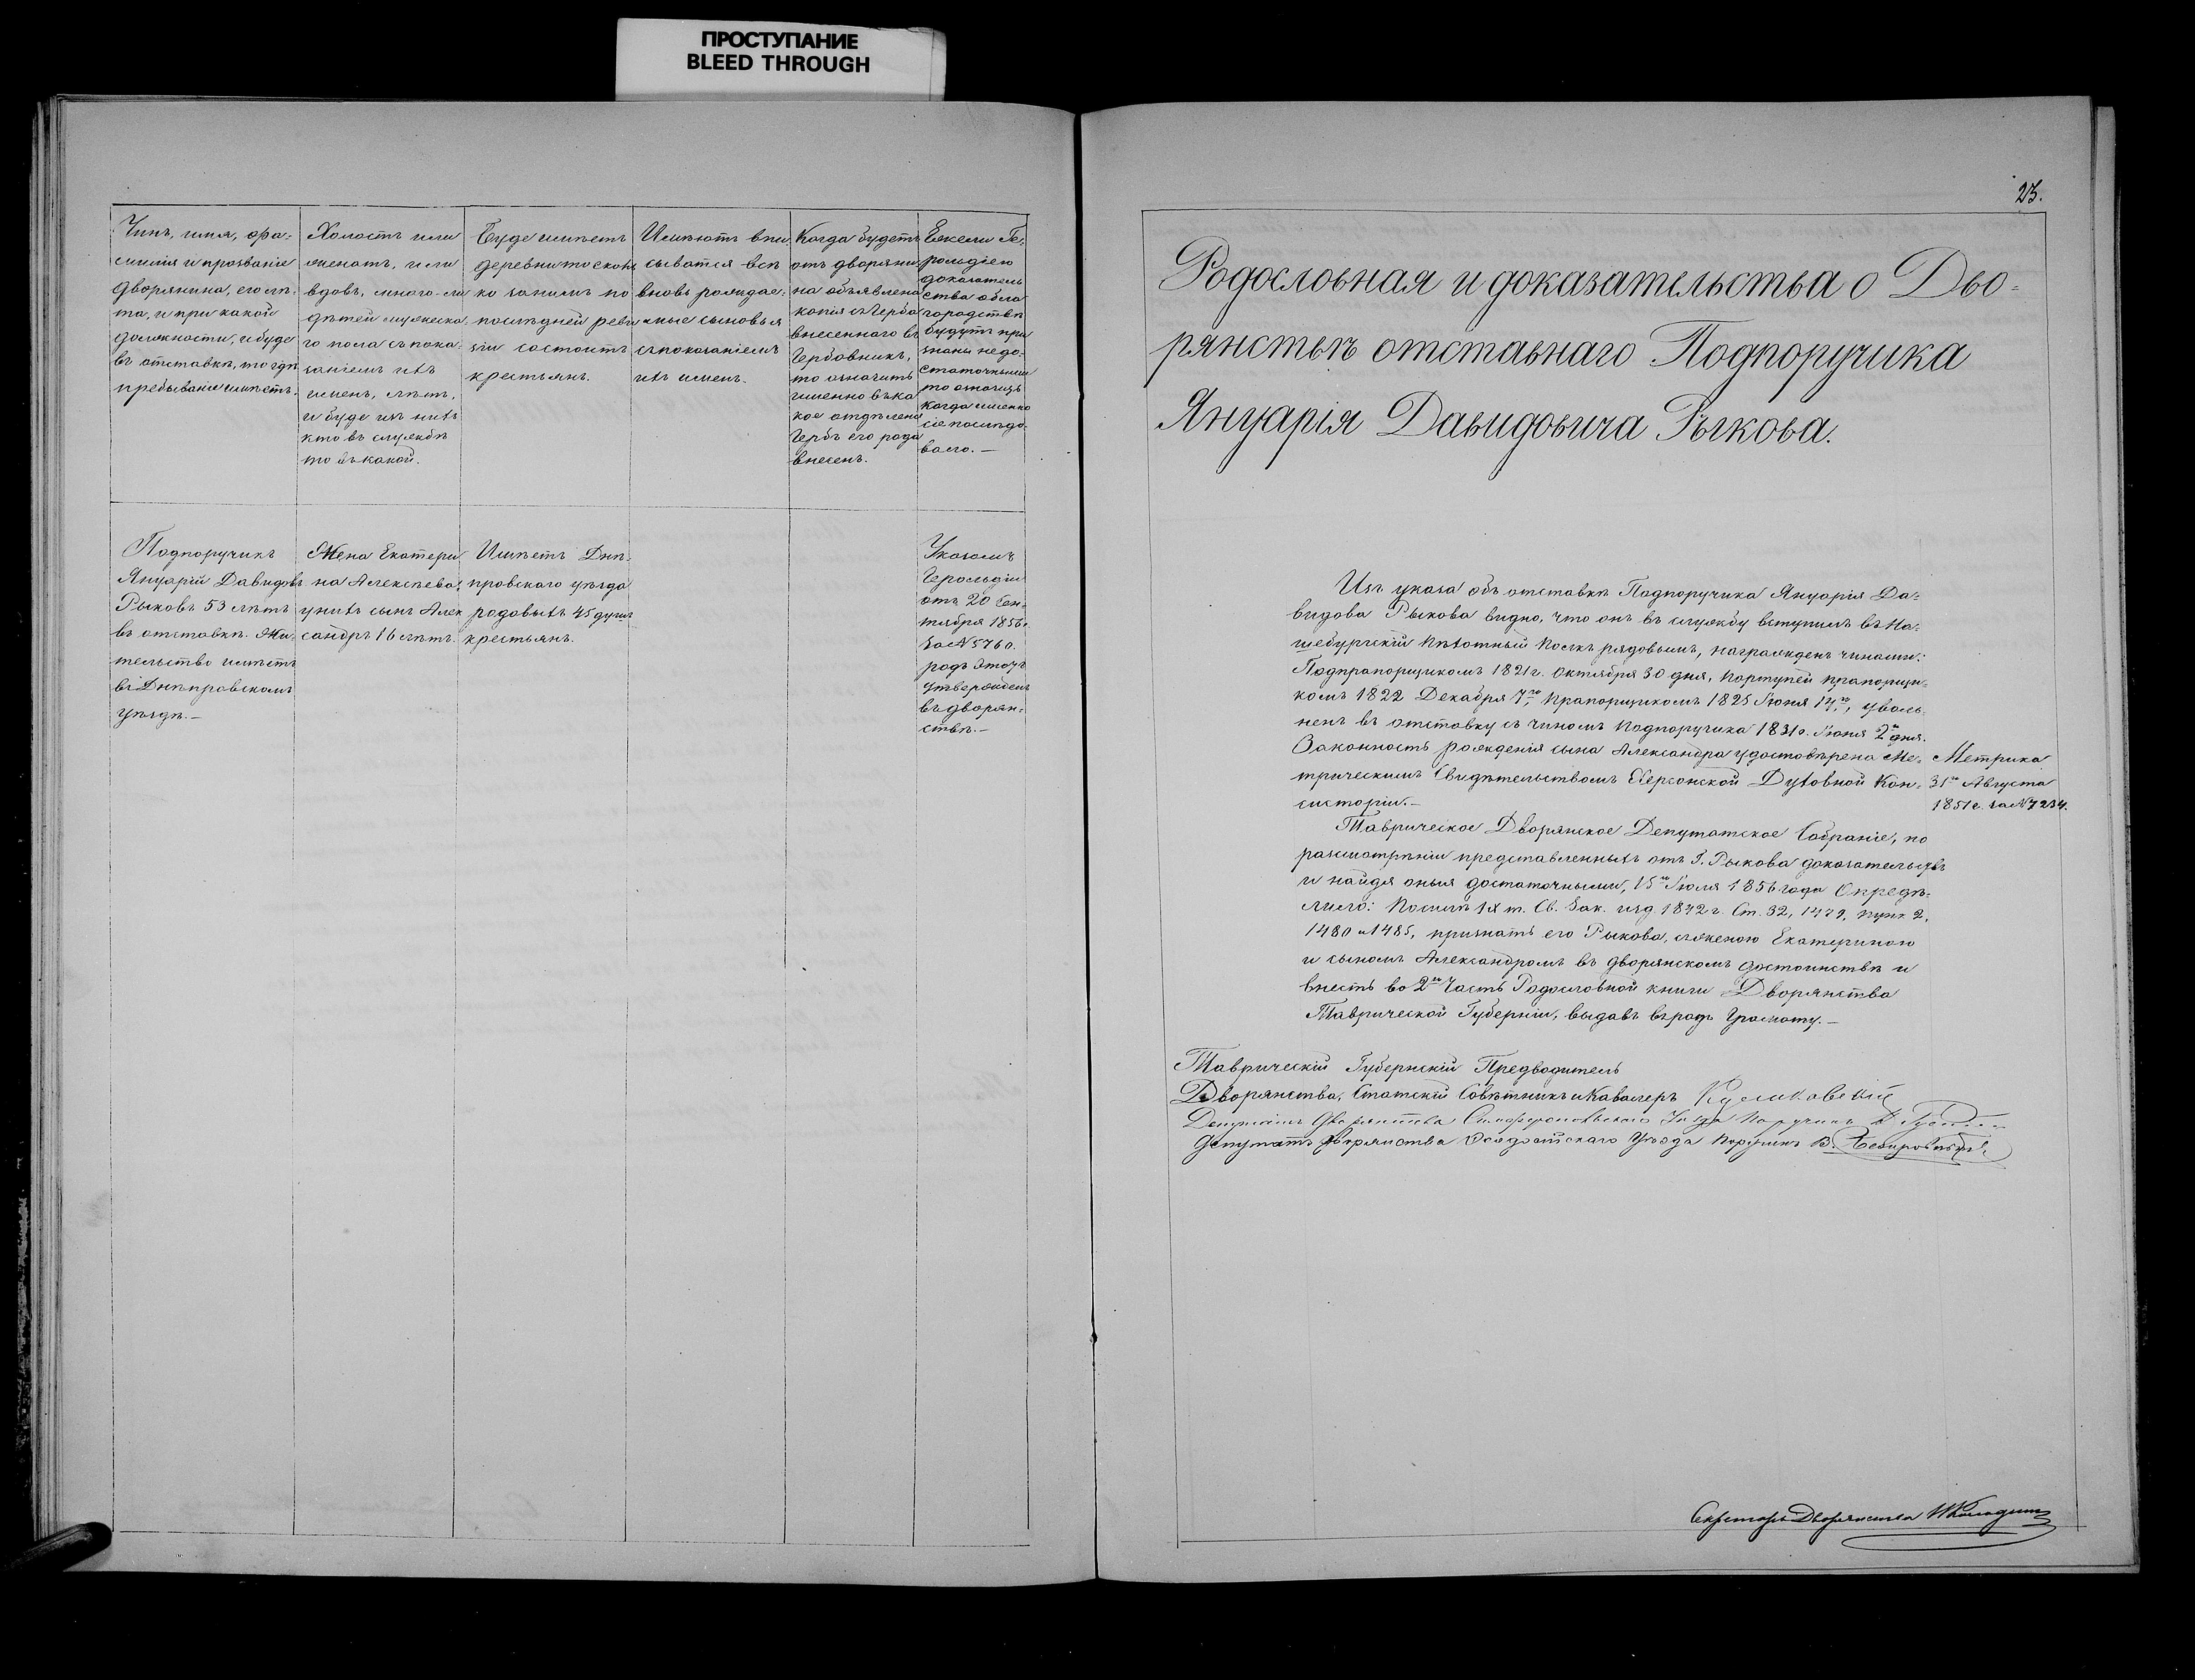 ПРОСТУПАНИЕ
BLEED THROUGH
Чинъ, имя, фа-
милія и прозваніе
дворянина, его лѣ-
та, и при какой
должности, и буде
въ отставкѣ, то гдѣ
пребываніе имѣетъ.
Холостъ или
женатъ, или
вдовъ, много-ли
дѣтей мужеска-
го пола съ пока-
заніемъ ихъ
именъ, лѣтъ,
и буде изъ нихъ
кто въ службѣ
то въ какой.
Буде имѣетъ
деревни то сколь
ко за нимъ по
послѣдней реви
зіи состоитъ
крестьянъ.
Имѣютъ впи
сыватся всѣ
вновь рождае-
мые сыновья
съ показаніемъ
ихъ именъ.
Когда будетъ
отъ дворяни
на объявлена
копія съ Герба
внесеннаго въ
Гербовникъ,
то означить
именно въ ка
кое отдѣлена
Гербъ его рода
внесенъ.
Ежели Ге-
рольдіею
доказатель
ства о бла
городствѣ
будутъ при
знаны недо-
статочными
то означить
когда именно
сіе послѣдо-
вало.—
Подпоручикъ
Януарій Давидовъ
Рыковъ 53 лѣтъ
въ отставкѣ. Жи-
тельство имѣетъ
въ Днѣпровскомъ
уѣздѣ.—
Жена Екатери
на Алексѣева,
у нихъ сынъ Алек
сандръ 16 лѣтъ.
Имѣетъ Днѣ-
провскаго уѣзда
родовыхъ 45 душъ
крестьянъ.
Указомъ
Герольдіи
отъ 20 Сен-
тября 1856 г.
за № 5760.
родъ этотъ
утвержденъ
въ дворян-
ствѣ.—
23.
Родословная и доказательства о Дво-
рянствѣ отставнаго Подпоручика
Януарія Давидовича Рыкова.
Изъ указа объ отставкѣ Подпоручика Януарія Да-
видова Рыкова видно, что онъ въ службу вступилъ въ На-
шебургскій Пѣхотный Полкъ рядовымъ, награжденъ чинами:
Подпрапорщикомъ 1821 г. Октября 30 дня, Портупей прапорщи-
комъ 1822 Декабря 7го, Прапорщикомъ 1825 Іюня 14го, уволь-
ненъ въ отставку съ чиномъ Подпоручика 1831 г. Іюня 2го дня.
Законность рожденія сына Александра удостовѣрена Ме-
трическимъ Свидѣтельствомъ Херсонской Духовной Кон-
систоріи.—
Метрика
31го Августа
1851 г. за № 7234.
Таврическое Дворянское Депутатское Собраніе, по
разсмотрѣніи представленныхъ отъ Г. Рыкова доказательствъ
и найдя оныя достаточными, 15го Іюля 1856 года Опредѣ-
лило: По силѣ IX т. Св. Зак. изд. 1842 г. Ст. 32, 1479, пунк. 2,
1480 и 1485, признать его Рыкова, съ женою Екатериною
и сыномъ Александромъ въ дворянскомъ достоинствѣ и
внесть во 2ю Часть Родословной книги Дворянства
Таврической Губерніи, выдавъ въ родъ Грамоту.—
Таврическій Губернскій Предводитель
Дворянства, Статскій Совѣтникъ и Кавалеръ
Депутатъ Дворянства Симферопольскаго Уѣзда Поручикъ
Депутатъ Дворянства Ѳеодосійскаго Уѣзда Поручикъ В.
Секретарь Дворянства